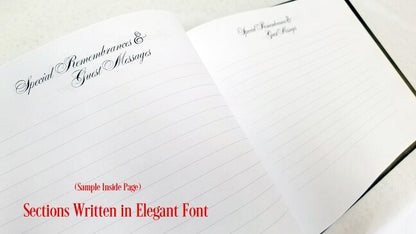 Special Remembrances &
Guest Messages
Special Remembrances &
Guest Messages
(Sample Inside Page)
Sections Written in Elegant Font